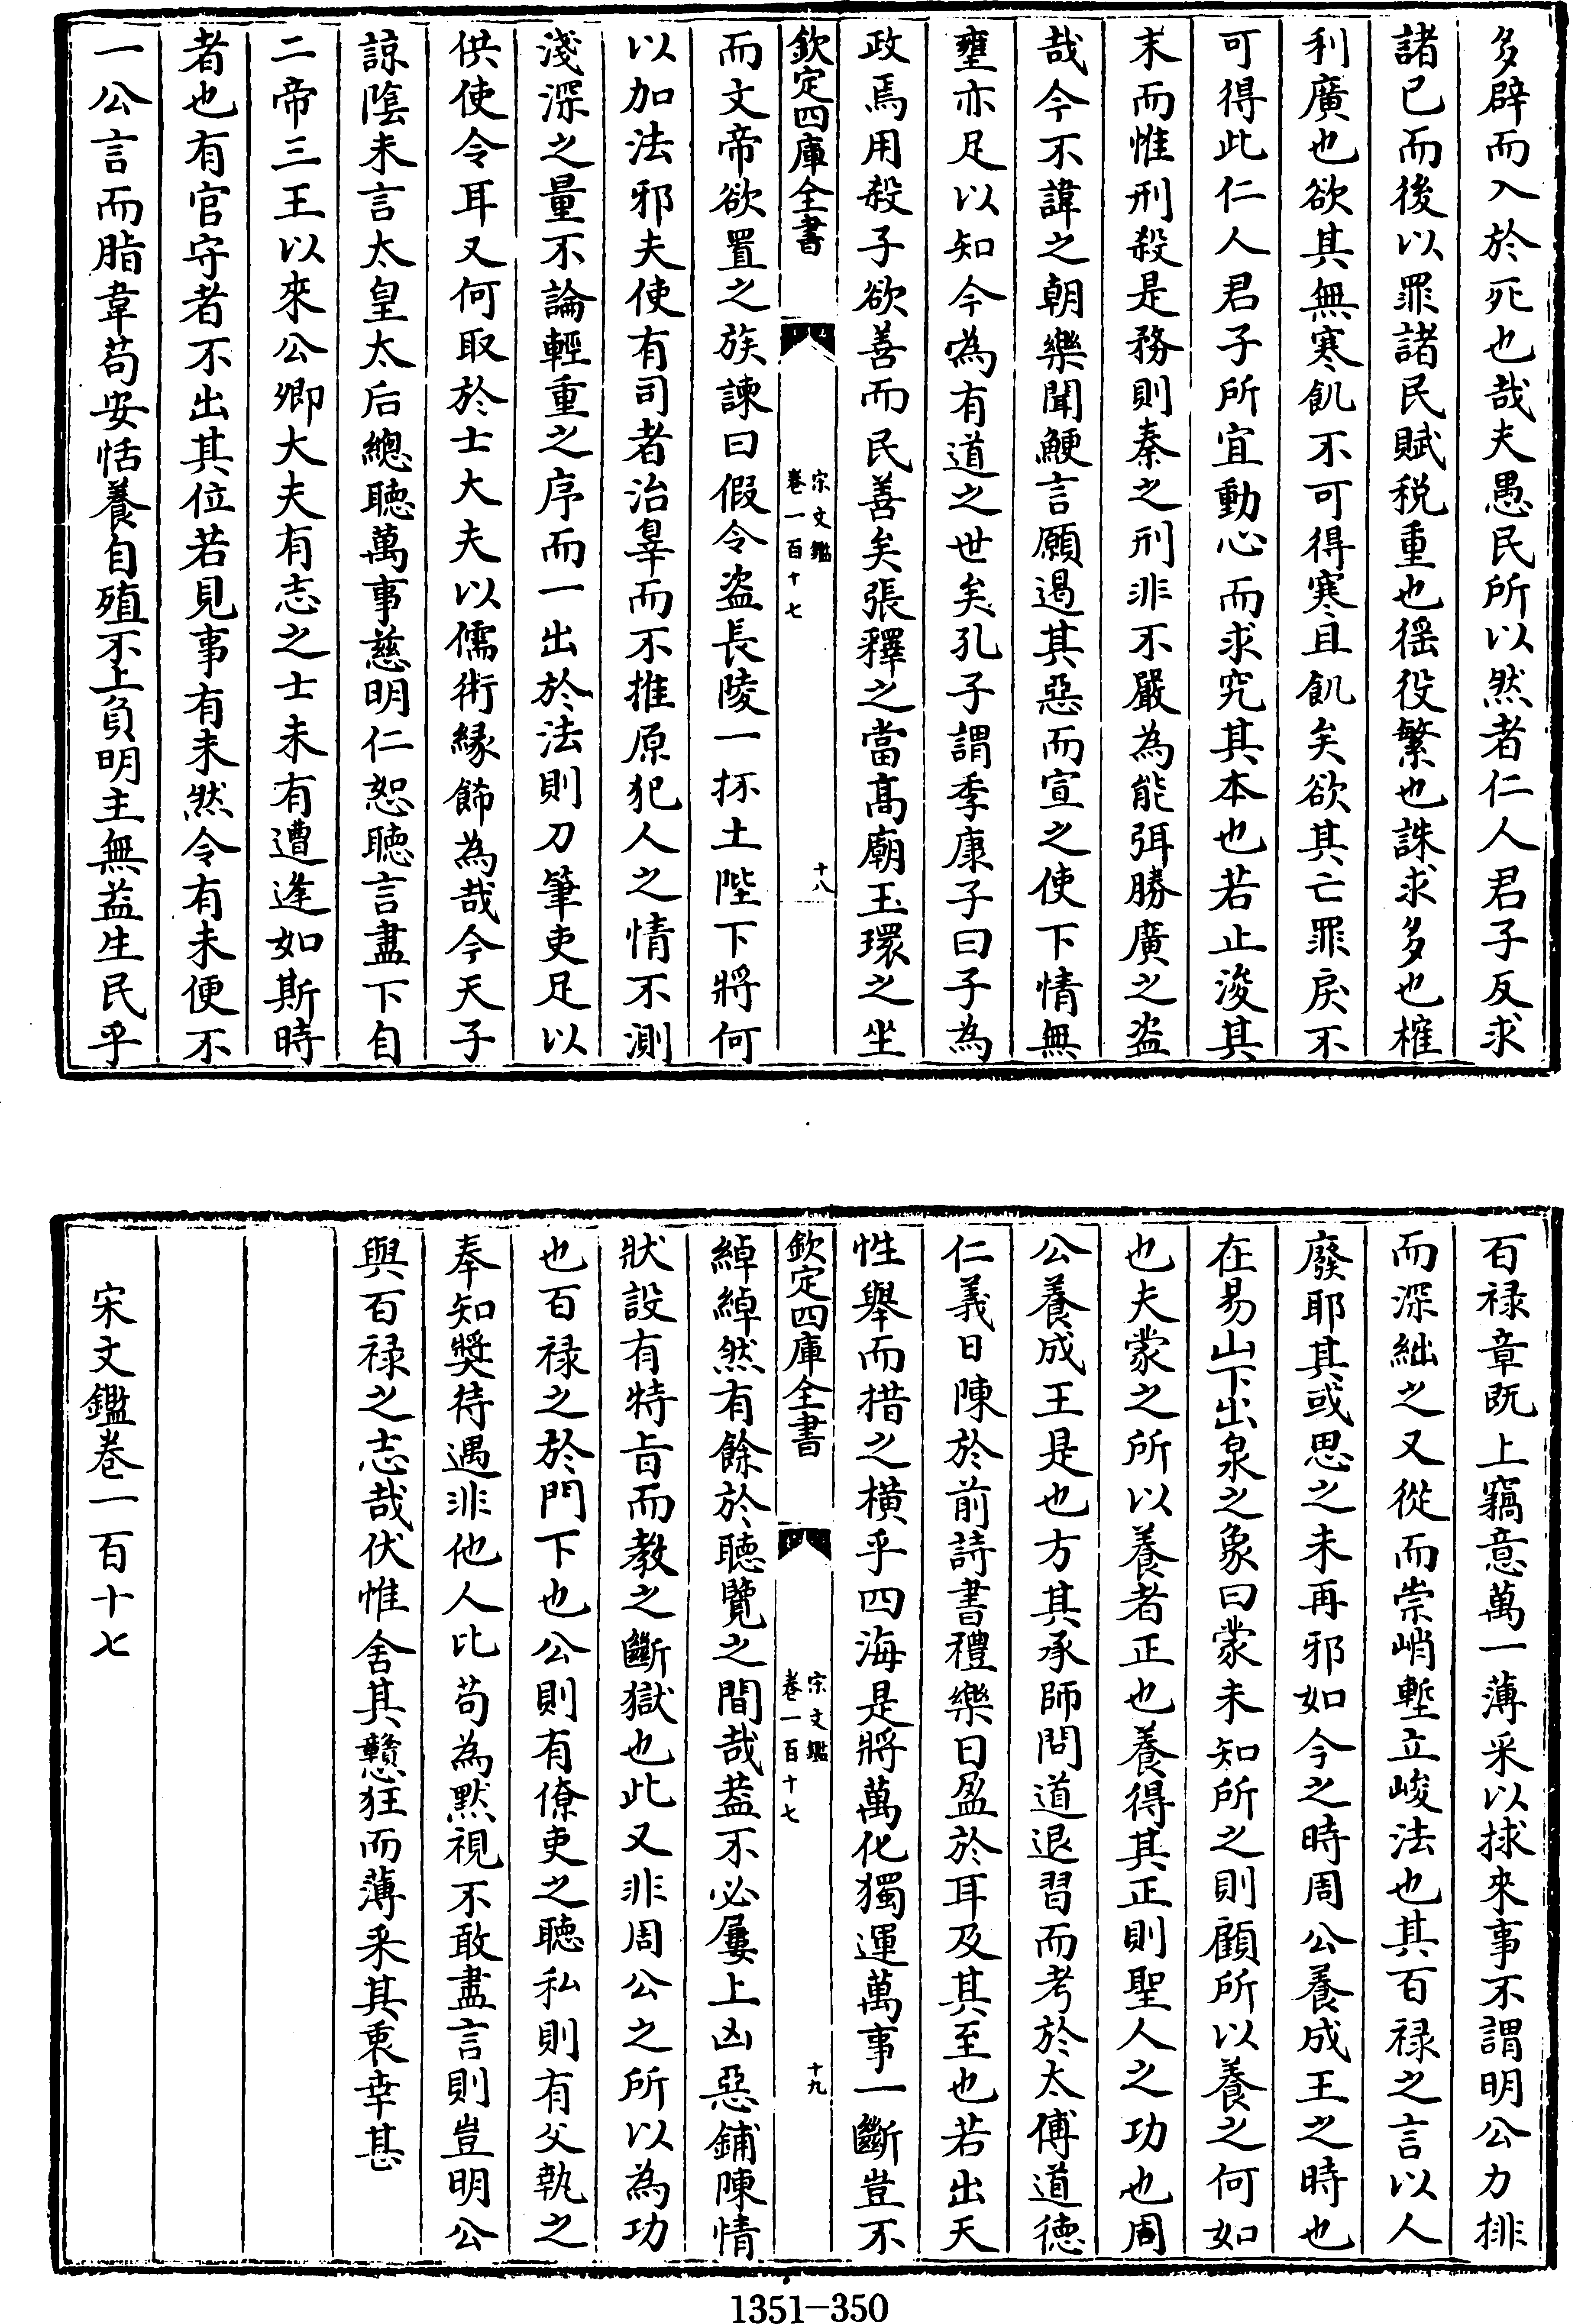 多辟而入於死也哉夫愚民所以然者仁人君子反求
諸已而後以罪諸民賦税重也徭役繁也誅求多也榷
利廣也欲其無寒飢不可得寒且飢矣欲其亡罪戾不
可得此仁人君子所宜動心而求究其本也若止浚其
末而惟刑殺是務則秦之刑非不嚴為能弭勝廣之盗
哉今不諱之朝樂聞鯁言願遏其惡而宣之使下情無
壅亦足以知今為有道之世矣孔子謂季康子曰子為
政焉用殺子欲善而民善矣張釋之當髙廟玉環之坐
欽定四庫全書
宋文鑑
卷一百十七
十八
而文帝欲置之族諫曰假令盗長陵一抔土陛下將何
以加法邪夫使有司者治辠而不推原犯人之情不測
淺深之量不論輕重之序而一出於法則刀筆吏足以
供使令耳又何取於士大夫以儒術縁飾為哉今天子
諒隂未言太皇太后總聴萬事慈明仁恕聴言盡下自
二帝三王以來公卿大夫有志之士未有遭逢如斯時
者也有官守者不出其位若見事有未然令有未便不
一公言而脂韋苟安恬養自殖不上負明主無益生民乎
百禄章既上竊意萬一薄采以捄來事不謂明公力排
而深絀之又從而崇峭塹立峻法也其百禄之言以人
廢耶其或思之未再邪如今之時周公養成王之時也
在易山下出泉之象曰蒙未知所之則顧所以養之何如
也夫蒙之所以養者正也養得其正則聖人之功也周
公養成王是也方其承師問道退習而考於太傅道徳
仁義日陳於前詩書禮樂日盈於耳及其至也若出天
性舉而措之横乎四海是將萬化獨運萬事一斷豈不
欽定四庫全書
宋文鑑
卷一百十七
十九
綽綽然有餘於聴覽之間哉葢不必屢上凶惡鋪陳情
狀設有特㫖而教之斷獄也此又非周公之所以為功
也百禄之於門下也公則有僚吏之聴私則有父執之
奉知奬待遇非他人比苟為黙視不敢盡言則豈明公
與百禄之志哉伏惟舍其戇狂而薄采其衷幸甚
宋文鑑卷一百十七
1351-350